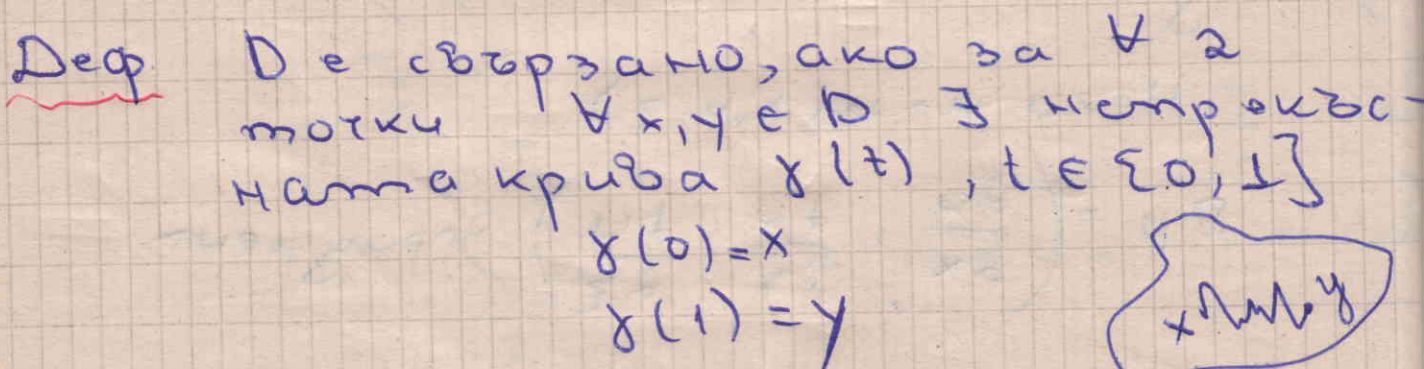 Деф. D е свързано, ако за ∀ 2
точки ∀ x, y ∈ D ∃ непрекъс-
ната крива γ(t), t ∈ {0, 1}
γ(0) = x
γ(1) = y
x y